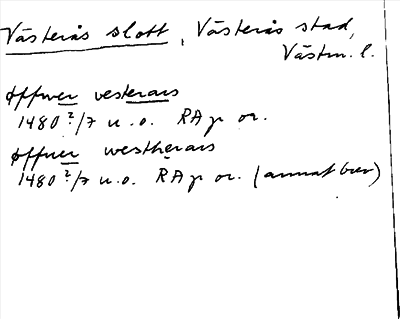 Västerås slott, Västerås stad,
Västm. l.
øffwer vesterars
1480 2/7 u.o. RAp or.
øffuer westherars
1480 2/7 u.o. RAp or. (annat brev)